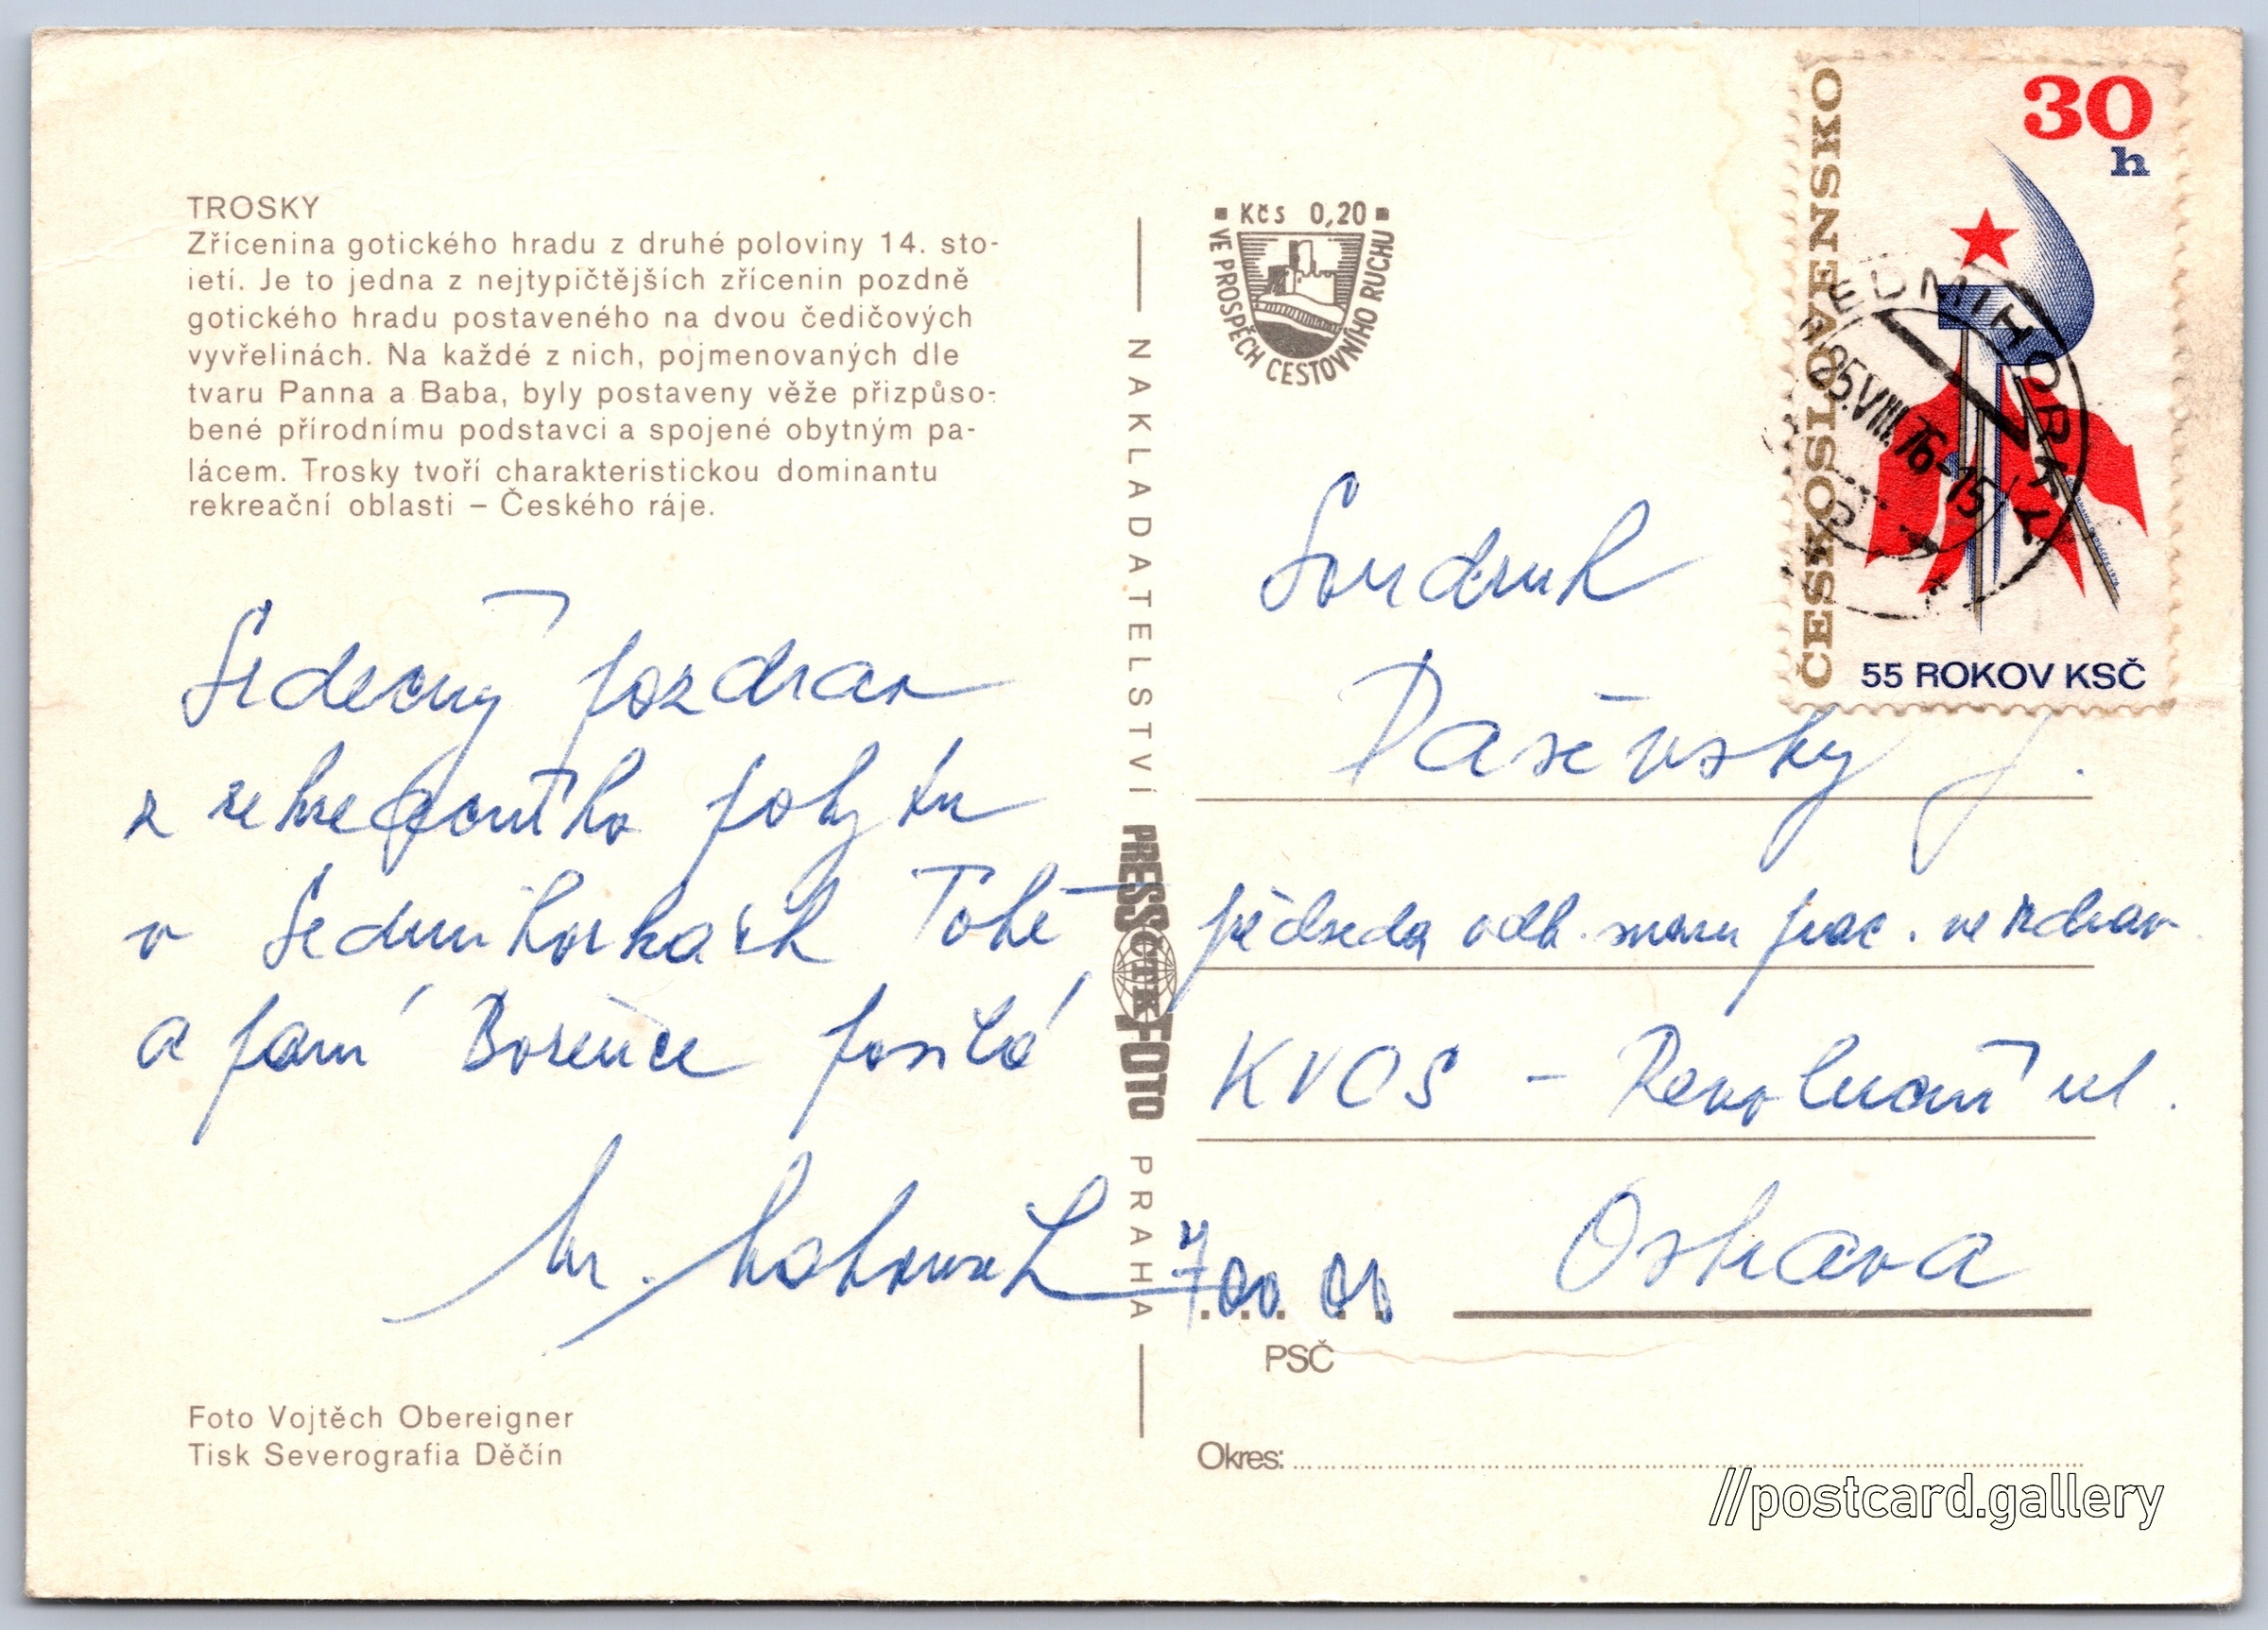 TROSKY
Zřícenina gotického hradu z druhé poloviny 14. sto-
ietí. Je to jedna z nejtypičtějších zřícenin pozdně
gotického hradu postaveného na dvou čedičových
vyvřelinách. Na každé z nich, pojmenovaných dle
tvaru Panna a Baba, byly postaveny věže přizpůso-
bené přírodnímu podstavci a spojené obytným pa-
lácem. Trosky tvoří charakteristickou dominantu
rekreační oblasti – Českého ráje.
Srdečný pozdrav
z rekreačního pobytu
v Sedmihorkach Tobě
a paní Božence posílá
Foto Vojtěch Obereigner
Tisk Severografia Děčín
NAKLADATELSTVÍ PRESSFOTO PRAHA
ČTK
Kčs 0,20
VE PROSPĚCH CESTOVNÍHO RUCHU
ČESKOSLOVENSKO
30
h
55 ROKOV KSČ
EDMIHORKY
25.VIII.76-15
Soudruh
J.
předseda odb. svazu prac. ve zdrav.
KVOS – Revoluční ul.
700 00 Ostrava
PSČ
Okres:
//postcard.gallery